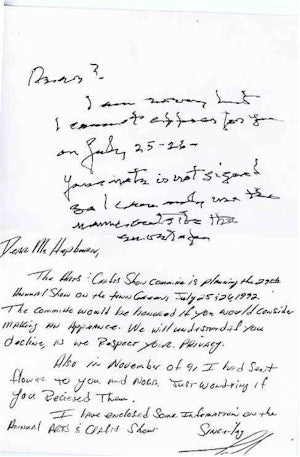 Dears?
I am sorry but
I cannot appear for you
on July 25-26-
Your note is not signed
So I can only use the
name outside the
envelope
Dear Ms Hepburn,
The Arts & Crafts Show Committe is planning the 29th
Annual Show on the town Common July 25 & 26 1992.
The committe would be honored if you would consider
making an Apperance. We will understand if you
decline, as we Respect your privacy.
Also in November of 91 I had sent
flower to you and Nora, Just wondering if
you Recieved Them.
I have enclosed Some Information on the
Annual Arts & Crafts Show
Sincerely